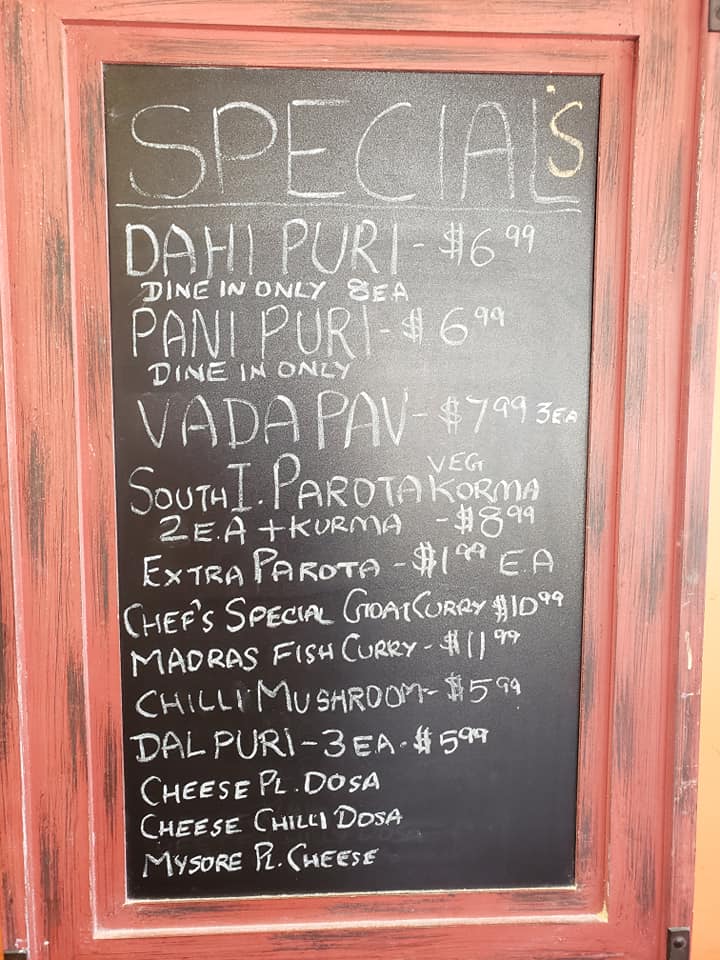 SPECIAL'S
DAHI PURI - $6.99
DINE IN ONLY 8EA
PANI PURI - $6.99
DINE IN ONLY
VADA PAV - $7.99 3EA
VEG
SOUTH I. PAROTA KORMA
2E.A + KURMA - $8.99
EXTRA PAROTA - $1.99 E.A
CHEF'S SPECIAL GOAT CURRY $10.99
MADRAS FISH CURRY - $11.99
CHILLI MUSHROOM - $5.99
DAL PURI - 3EA. $5.99
CHEESE PL. DOSA
CHEESE CHILLI DOSA
MYSORE PL. CHEESE